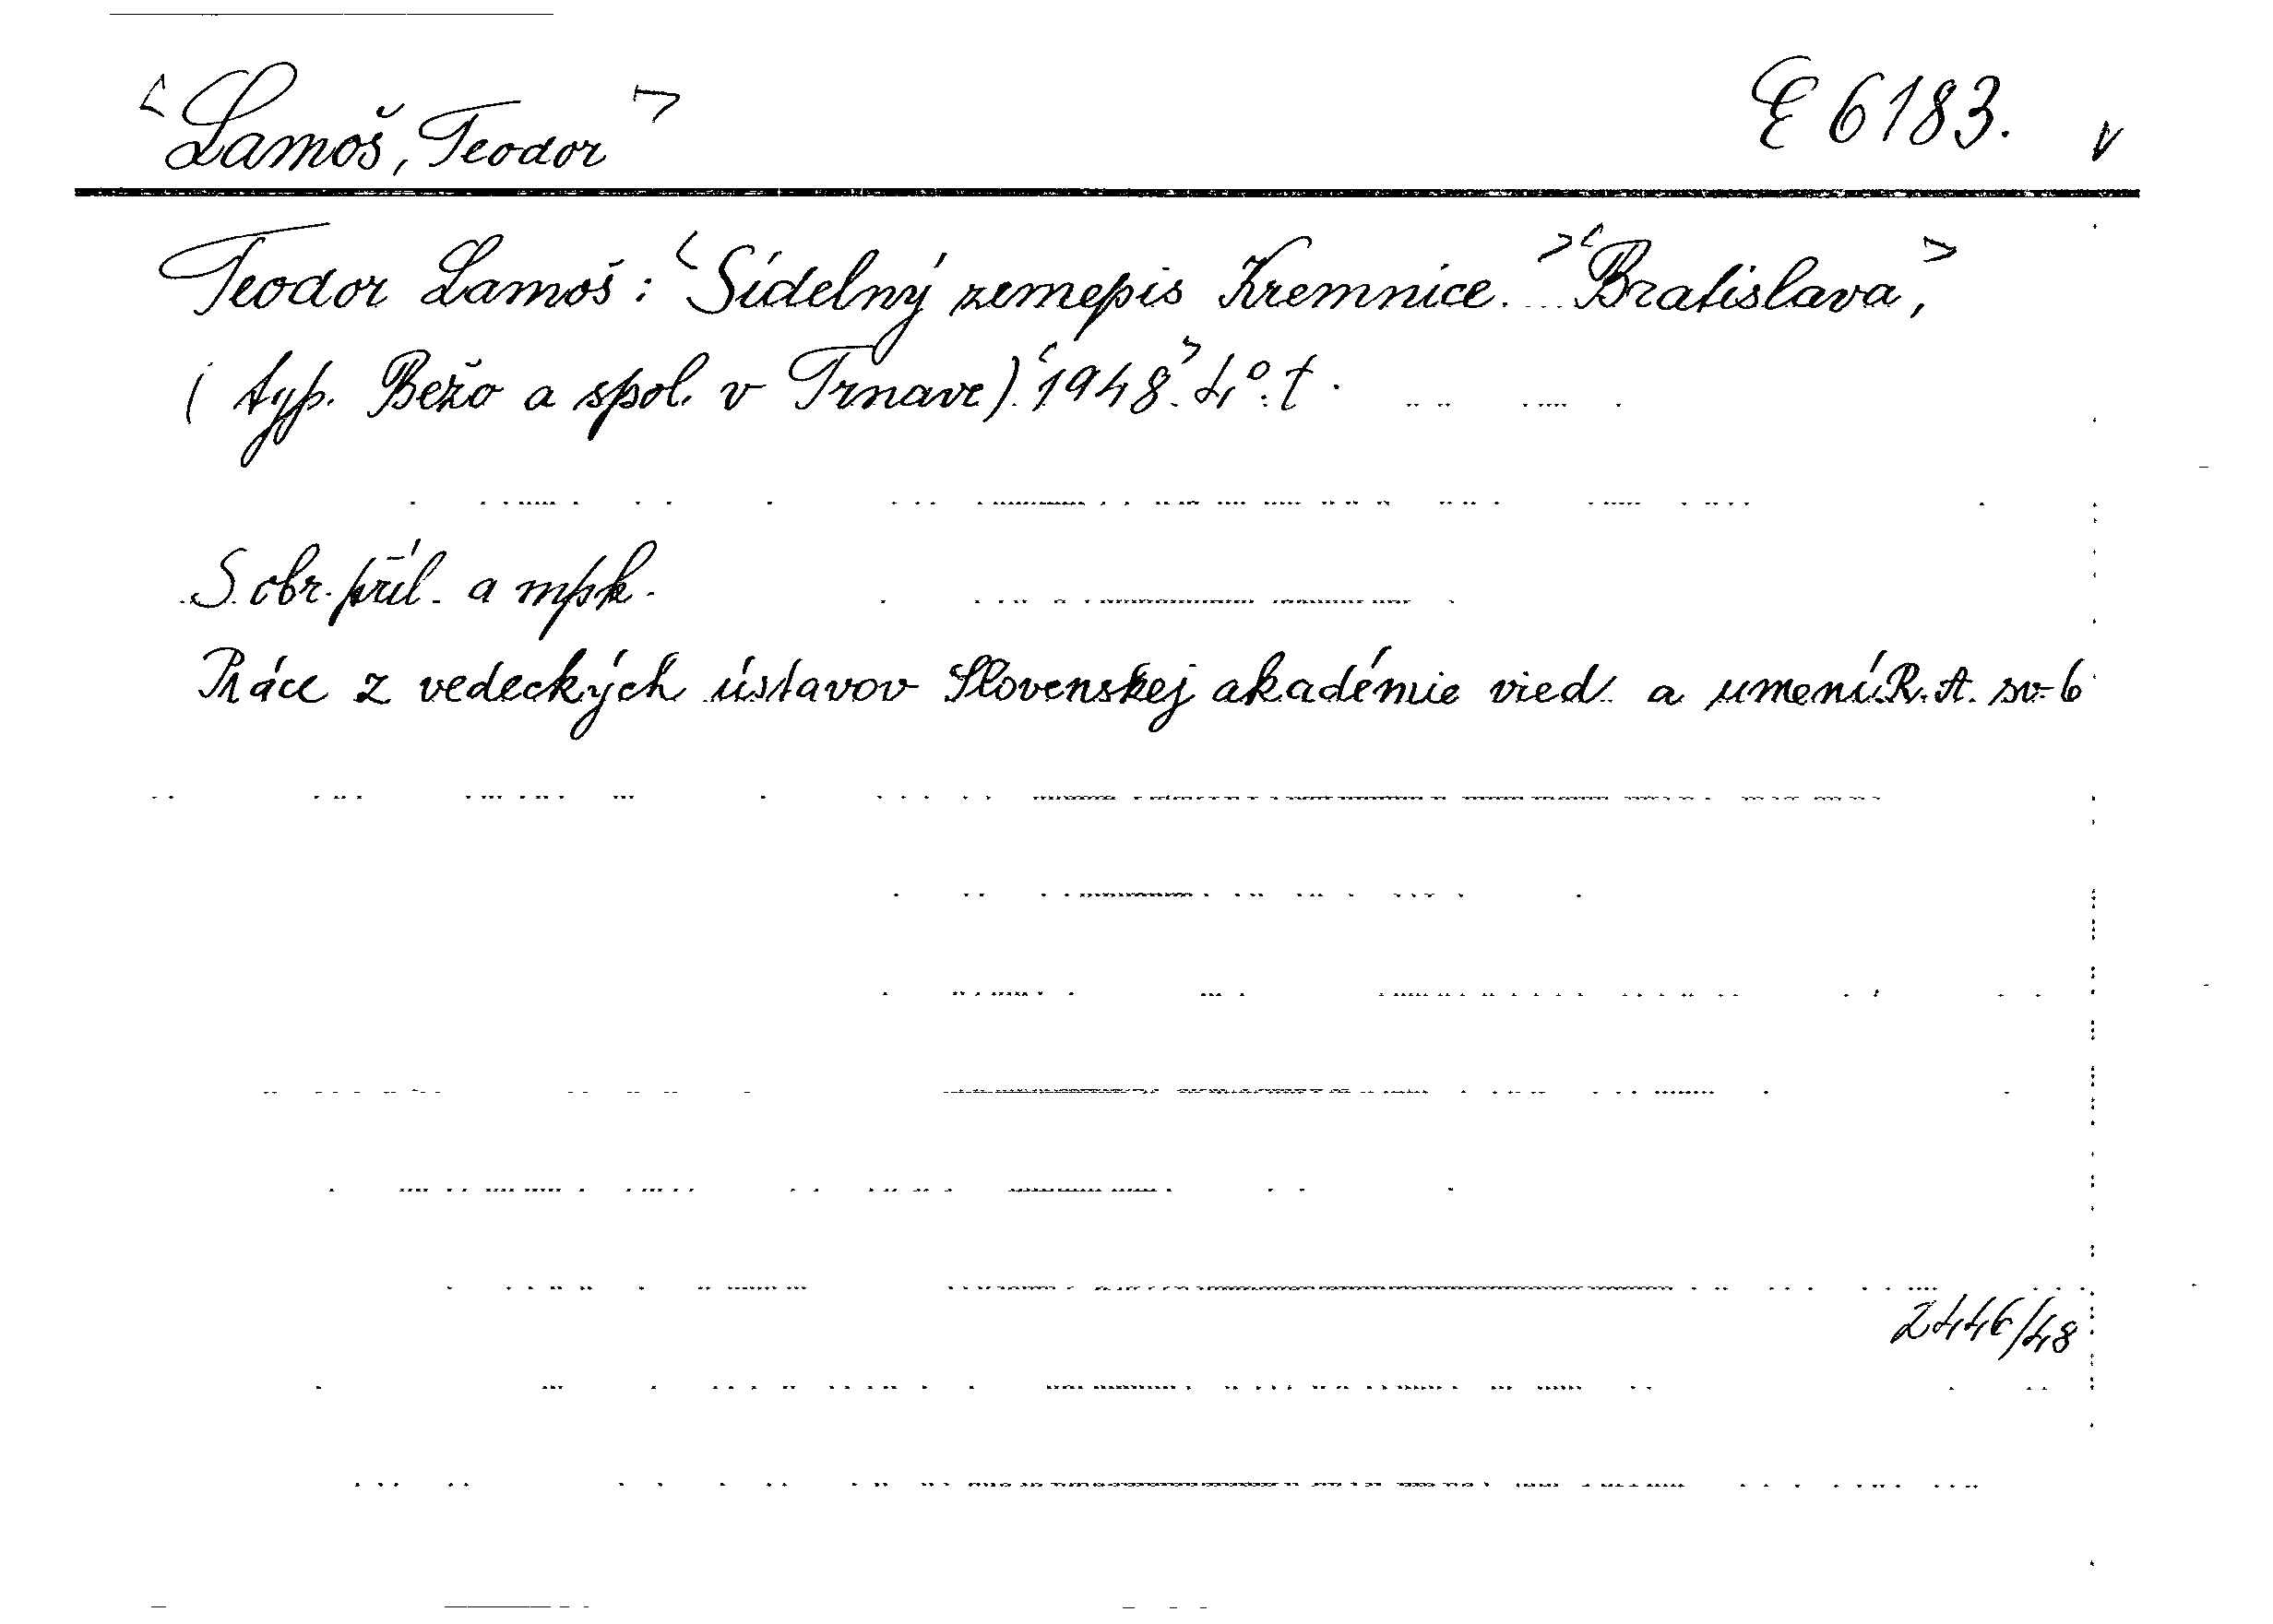 <Lamoš, Teodor> E 6183. v
Teodor Lamoš: <Sídelný zemepis Kremnice.> <Bratislava,>
(typ. Bežo a spol. v Trnave). <1948>. 4°. t.
S obr. příl. a mpk.
Práce z vedeckých ústavov Slovenskej akadémie vied a umení. R. A. sv. 6
2446/48